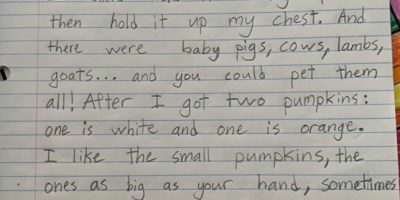 then hold it up my chest. And
there were baby pigs, cows, lambs,
goats... and you could pet them
all! After I got two pumpkins:
one is white and one is orange.
I like the small pumpkins, the
ones as big as your hand, sometimes